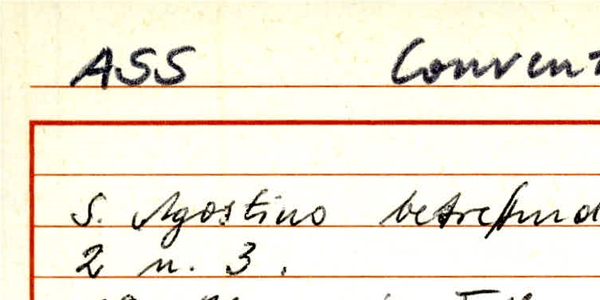 ASS Convent
S. Agostino betreffend
2 n. 3.